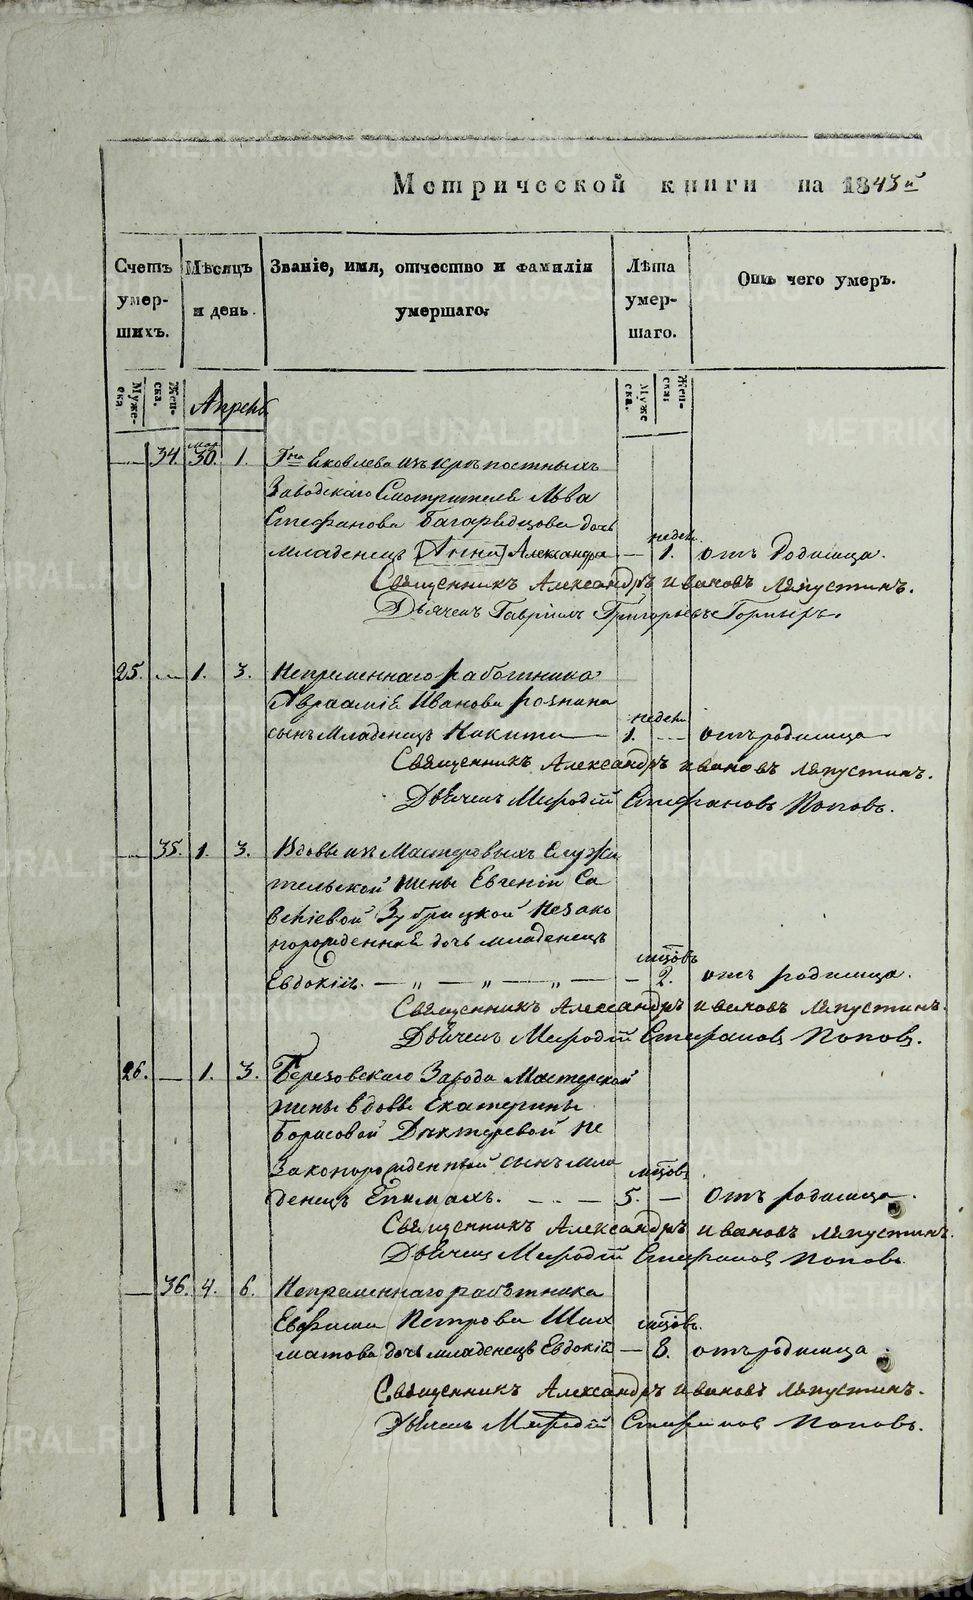 Метрической книги на 1843й
Счетъ умер- шихъ.
Мѣсяцъ и день.
Званіе, имя, отчество и фамилія умершаго.
Лѣта умер- шаго.
Отъ чего умеръ.
Муже- ска
Жен- ска.
Муже ска.
Жен- ска:
Апрель
34. мар 30. 1. Гна Яковлева изъ крѣпостныхъ
Заводскаго Смотрителя Льва
Стефанова Багарядцова дочь
недел.
младенецъ [Анна] Александра — 1. отъ Родимца.
Священникъ Александръ Ивановъ Ляпустинъ.
Дьячекъ Гавріилъ Григорьевъ
25. — 1. 3. Непременнаго работника
Авраамія Иванова
недели
сынъ младенецъ Никита — 1. — отъ родимца
Священникъ Александръ Ивановъ Ляпустинъ.
Дьячекъ Мефодій Стефановъ Поповъ.
— 35. 1. 3. Вдовы изъ Мастеровыхъ Служи
тельской жены Евгеніи Са
вентіевой Зубрицкой Незако
норожденная дочь младенецъ
мцовъ
Евдокія. — „ — „ — „ — 2. отъ родимца.
Священникъ Александръ Ивановъ Ляпустинъ.
Дьячекъ Мефодій Стефановъ Поповъ.
26. — 1. 3. Березовскаго Завода Мастерской
жены вдовы Екатерины
Борисовой Дехтеревой Не
Законорожденный сынъ мла
мцовъ
денецъ Епимахъ. — 5. — Отъ родимца.
Священникъ Александръ Ивановъ Ляпустинъ.
Дьячекъ Мефодій Стефановъ Поповъ
— 36. 4. 6. Непременнаго работника
Евфима Петрова Шах
мцовъ.
матова дочь младенецъ Евдокія — 8. отъ родимца.
Священникъ Александръ Ивановъ Ляпустинъ.
Дьячекъ Мефодій Стефановъ Поповъ.
METRIKI.GASO-URAL.RU